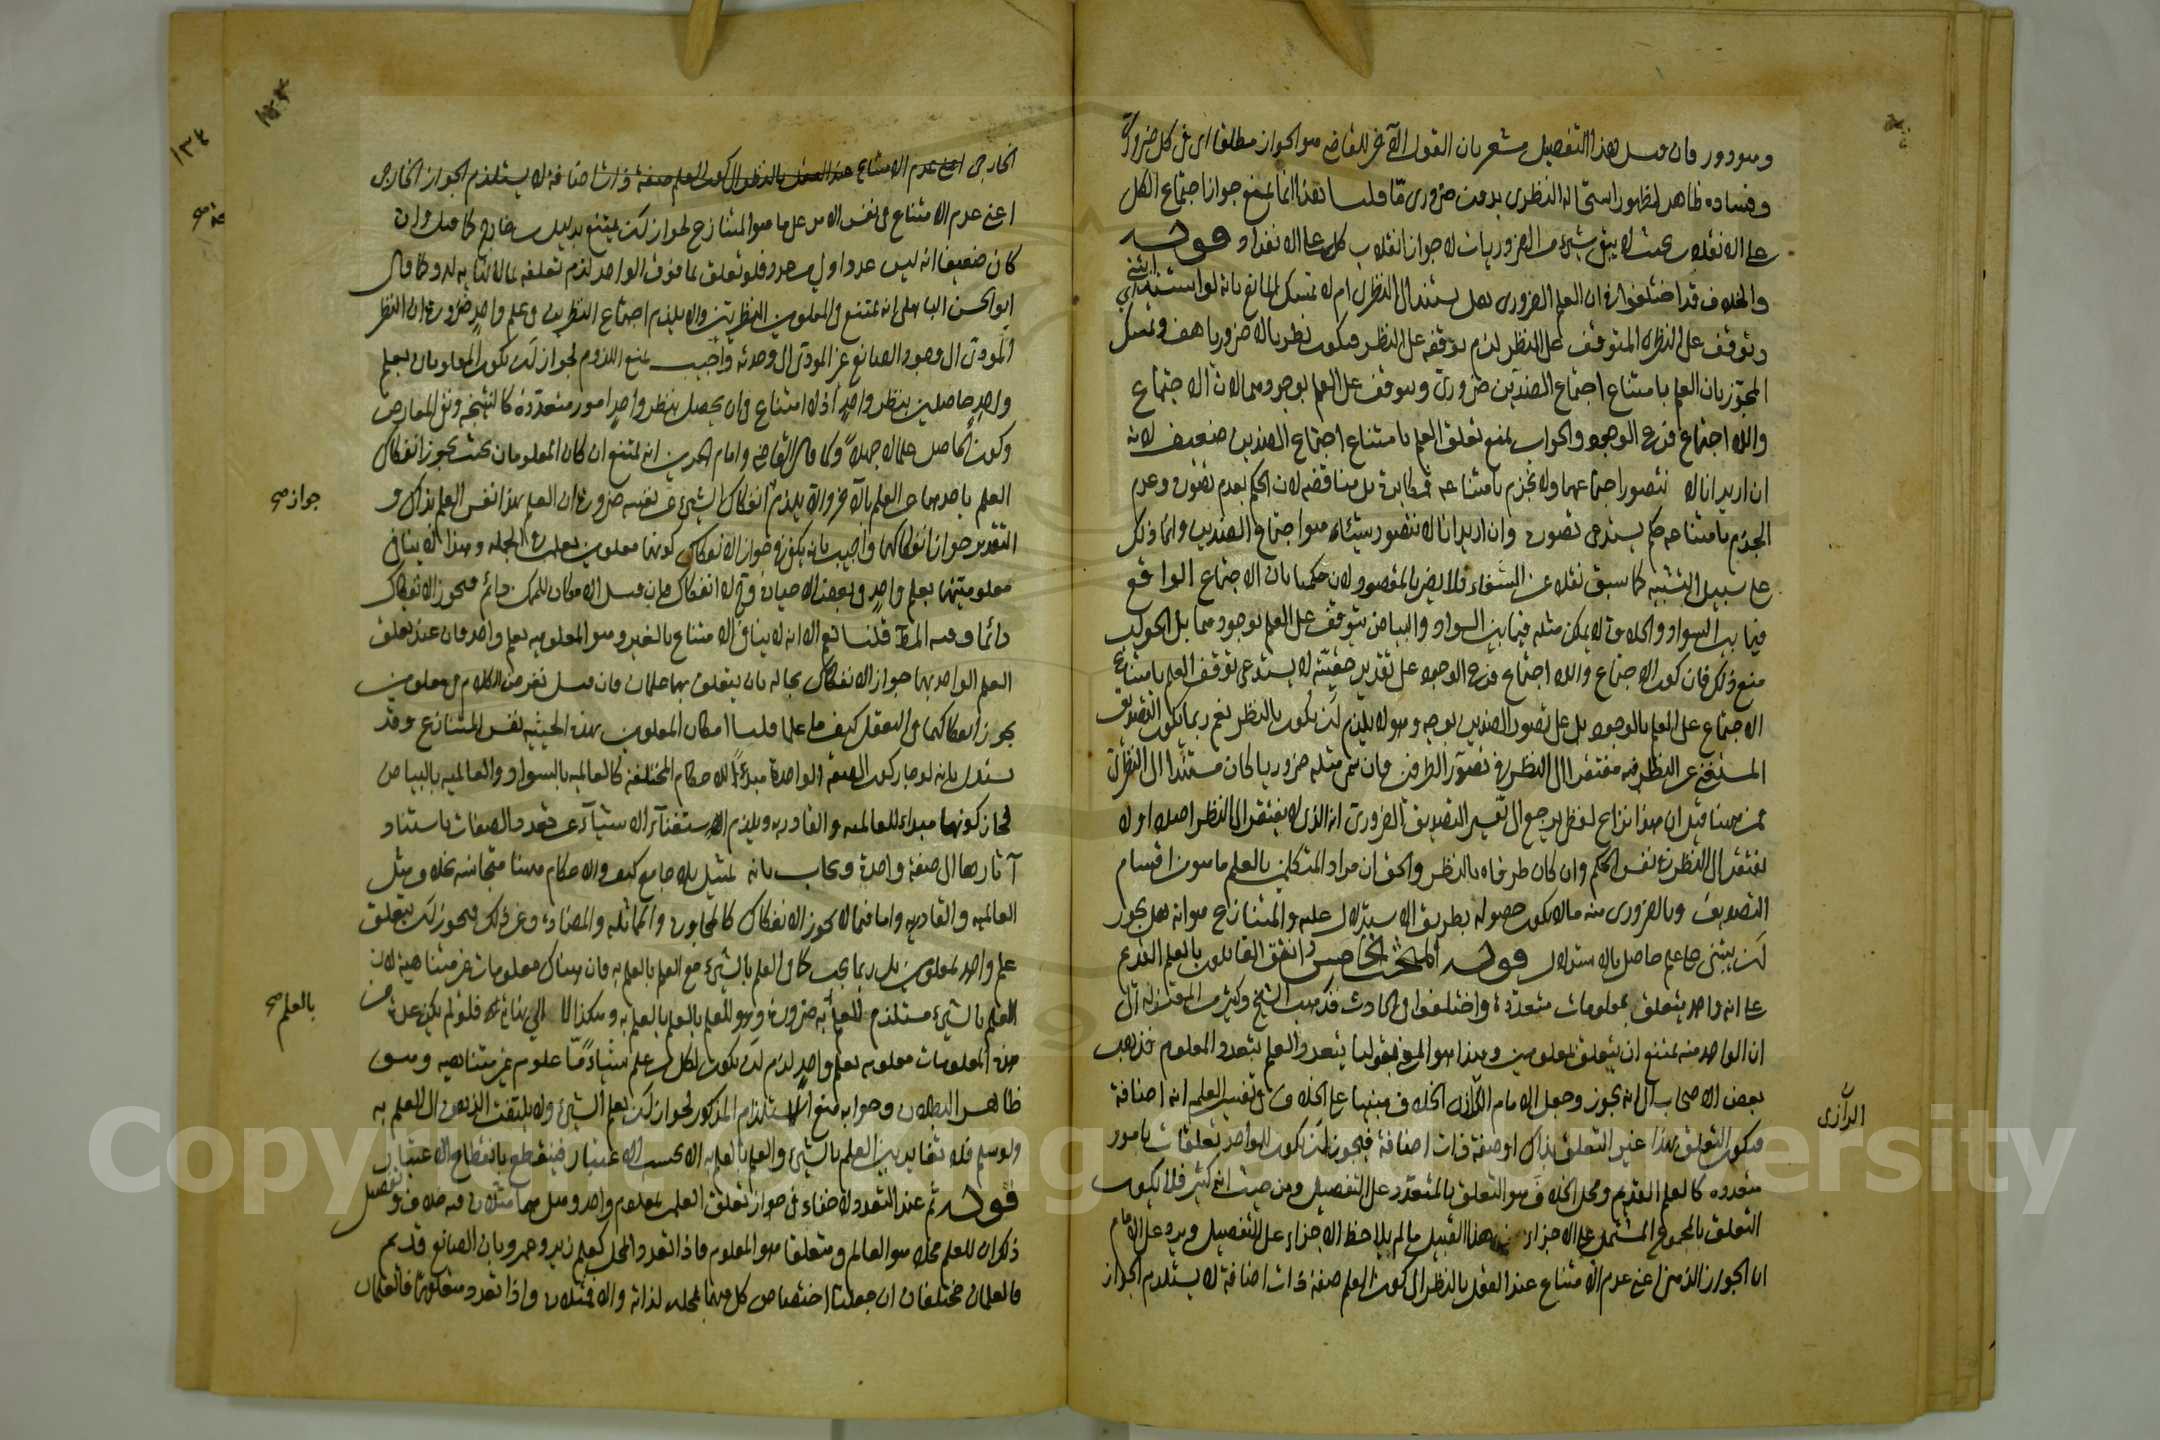 وهو دور فان قيل هذا التفصيل مشعر بان القول الآخر للقاضي هو الجواز مطلقا اي في كل ضروري
وفساده ظاهر لظهور استحالة النظري بدون ضروري ما قلنا نعم انما يمنع جواز اجتماع الكل
على الانقلاب بحيث لا يبقى شيء من الضروريات لا جواز انقلاب كل على الانفراد قوله
والخلاف قد اختلفوا في ان العلم الضروري هل يستند الى النظري ام لا تمسك المانع بانه لو استند
وتوقف على النظري المتوقف على النظر لزم توقفه على النظر فيكون نظريا لا ضروريا هف وتمسك
المجوز بان العلم بامتناع اجتماع الضدين ضروري ويتوقف على العلم بوجودهما لان الاجتماع
واللا اجتماع فرع الوجود والجواب بمنع تعلق العلم بامتناع اجتماع الضدين ضعيف لانه
ان اريد انا لا نتصور اجتماعهما ولا نجزم بامتناعه فمكابرة بل مناقضة لان الحكم بعدم تصوره وعدم
الجزم بامتناعه حكم يستدعي تصوره وان اريد انا لا نتصور شيئا هو اجتماع الضدين وانما ذلك
على سبيل التشبيه كما سبق نقله عن الشفاء فلا يضر بالمقصود لان حكمنا بان الاجتماع الواقع
فيما بين السواد والحلاوة لا يمكن مثله فيما بين السواد والبياض يتوقف على العلم بوجودهما بل الجواب
منع ذلك فان كون الاجتماع واللا اجتماع فرع الوجود على تقدير حقيته لا يستدعي توقف العلم بامتناع
الاجتماع على العلم بالوجود بل على تصور الضدين بوجه وهو لا يلزم ان يكون بالنظر نعم ربما يكون التصديق
المستغني عن النظر فيه مفتقرا الى النظر في تصور الطرفين فان سمي مثله ضروريا كان مستندا الى النظري
فمن ههنا قيل ان هذا نزاع لفظي يرجع الى تفسير التصديق الضروري انه الذي لا يفتقر الى النظر اصلا او لا
يفتقر الى النظر في نفس الحكم وان كان طرفاه بالنظر والحق ان مراد المتكلمين بالعلم ما هو من اقسام
التصديق وبالضروري منه ما لا يكون حصوله بطريق الاستدلال عليه والمتنازع هو انه هل يجوز
ان يبتني على علم حاصل بالاستدلال قوله المبحث الخامس اتفق القائلون بالعلم القديم
على انه واحد يتعلق بمعلومات متعددة واختلفوا في الحادث فذهب الشيخ وكثير من المعتزلة الى
ان الواحد منه يمتنع ان يتعلق بمعلومين وهذا هو المعني بقولنا يتعدد العلم بتعدد المعلوم فذهب
بعض الاصحاب الى انه يجوز وجعل الامام الرازي الخلاف مبنيا على الخلاف في تفسير العلم انه اضافة
فيكون التعلق بهذا غير التعلق بذاك او صفة ذات اضافة فيجوز ان يكون للواحد تعلقات بامور
متعددة كالعلم القديم ومحل الخلاف هو التعلق بالمتعدد على التفصيل ومن حيث انه كثير فلا يكون
التعلق بالمجموع المشتمل على الاجزاء من هذا القبيل ما لم يلاحظ الاجزاء على التفصيل ويرد على الامام
ان الجواز الذهني اعني عدم الامتناع عند العقل بالنظر الى كون العلم صفة ذات اضافة لا يستلزم الجواز
الرازي
الخارجي اعني عدم الامتناع عند العقل بالنظر الى كون العلم صفة ذات اضافة لا يستلزم الجواز الخارجي
اعني عدم الامتناع في نفس الامر على ما هو المتنازع لجواز ان يمتنع بدليل من خارج كما قيل وان
كان ضعيفا انه ليس عدد اولى من عدد فلو تعلق بما فوق الواحد لزم تعلقه بما لا نهاية له وكما قال
ابو الحسن الباهلي انه يمتنع في المعلومين النظريين والا يلزم اجتماع النظرين في علم واحد ضرورة ان النظر
المؤدي الى وجود الصانع غير المؤدي الى وحدته واجيب بمنع اللزوم لجواز ان يكون المعلومان بعلم
واحد حاصلين بنظر واحد اذ لا امتناع في ان يحصل بنظر واحد امور متعددة كالنتيجة ونفي المعارض
وكون الحاصل علما لا جهلا وكما قال القاضي وامام الحرمين انه يمتنع ان كان المعلومان بحيث يجوز انفكاك
العلم باحدهما عن العلم بالآخر والا يلزم انفكاك الشيء عن نفسه ضرورة ان العلم بهذا نفس العلم بذاك و
التقدير جواز انفكاكهما واجيب بانه يكفي في جواز الانفكاك كونهما معلومين بعلمين في الجملة وهذا لا ينافي
معلوميتهما بعلم واحد في بعض الاحيان وح لا انفكاك فان قيل الامكان للممكن دائم فيجوز الانفكاك
دائما وفيه المط قلنا نعم الا انه لا ينافي الامتناع بالغير وهو المعلومية بعلم واحد فان عند تعلق
العلم الواحد بهما جواز الانفكاك بحاله بان يتعلق بهما علمان فان قيل نفرض الكلام في معلومين
يجوز انفكاكهما في التعقل كيف ما علما قلنا امكان المعلومين بهذه الحيثية نفس المتنازع وقد
يستدل بانه لو جاز كون الصفة الواحدة مبدأ للاحكام المختلفة كالعالمية بالسواد والعالمية بالبياض
لجاز كونها مبدأ للعالمية والقادرية ويلزم استغناء الاشياء عن تعدد الصفات باستناد
آثارها الى صفة واحدة ويجاب بانه تمثيل بلا جامع كيف والاحكام ههنا متجانسة بخلاف مثل
العالمية والقادرية واما فيما لا يجوز الانفكاك كالمجاورة والمماثلة والمضادة وغير ذلك فيجوز ان يتعلق
علم واحد بمعلومين بل ربما يجب كما في العلم بالشيء مع العلم بالعلم به فان هناك معلومات غير متناهية لان
العلم بالشيء مستلزم للعلم به ضرورة وهو للعلم بالعلم بالعلم به وهكذا الى نهاية فلو لم يكن عدة من
هذه المعلومات معلومة بعلم واحد لزم ان يكون لكل من علم شيئا ما علوم غير متناهية وهو
ظاهر البطلان وجوابه منع الاستلزام المذكور لجواز ان يعلم الشيء ولا يلتفت الذهن الى العلم به
ولو سلم فلا تغاير بين العلم بالشيء والعلم بالعلم به الا بحسب الاعتبار فينقطع بانقطاع الاعتبار
قوله ثم عند التعدد لا خفاء في جواز تعلق العلم بمعلوم واحد وهل هما مثلان فيه خلاف وتفصيل
ذلك ان للعلم محلا هو العالم ومتعلقا هو المعلوم فاذا تعدد المحل كعلم زيد وعمرو بان الصانع قديم
فالعلمان مختلفان ان جعلنا اختصاص كل منهما لمحله لذاته والا فمثلان واذا تعدد متعلقهما فالعلمان
جواز صح
بالعلم صح
١٣٤